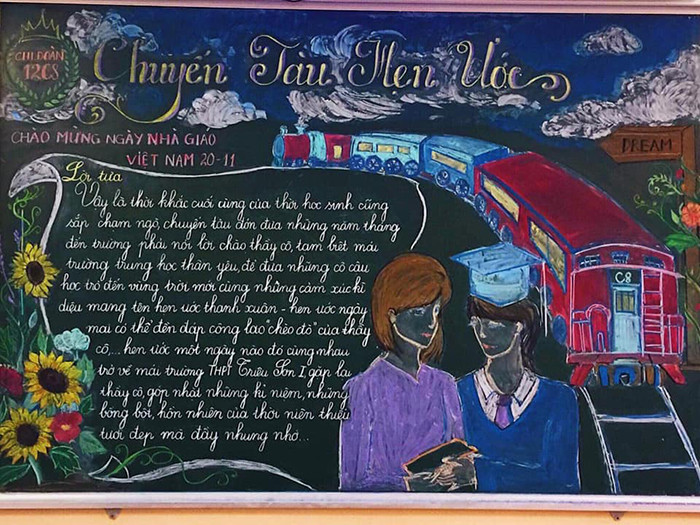 CHI ĐOÀN
12C8
Chuyến Tàu Hẹn Ước
CHÀO MỪNG NGÀY NHÀ GIÁO
VIỆT NAM 20-11
DREAM
Lời tựa
Vậy là thời khắc cuối cùng của thời học sinh cũng
sắp chạm ngõ, chuyến tàu đón đưa những năm tháng
đến trường phải nói lời chào thầy cô, tạm biệt mái
trường trung học thân yêu, để đưa những cô cậu
học trò đến vùng trời mới cùng những cảm xúc kì
diệu mang tên hẹn ước thanh xuân - hẹn ước ngày
mai có thể đền đáp công lao "chèo đò" của thầy
cô,... hẹn ước một ngày nào đó cùng nhau
trở về mái trường THPT Triệu Sơn I, gặp lại
thầy cô, góp nhặt những kỉ niệm, những
bồng bột, hồn nhiên của thời niên thiếu
tươi đẹp mà đầy nhung nhớ...
C8